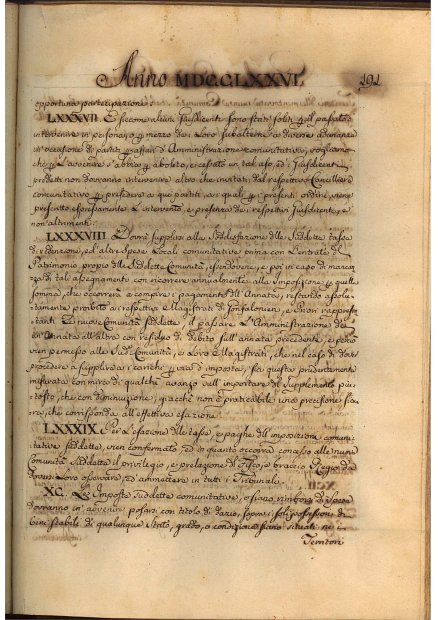 Anno MDCCLXXVI. 292
opportuna partecipazione.
LXXXVII. E siccome alcuni Jusdicenti sono stati soliti per il passato
intervenire in persona, o per mezzo dei Loro subalterni a diverse adunanze
in occasione di partiti, e affari d'Amministrazione comunitativa, vogliamo
che per l'avvenire s'abbia per abolito, e cessato in tal caso, ed i Jusdicenti
predetti non dovranno intervenire altro che invitati dal respettivo Cancelliere
comunitativo per presedere a quei partiti, ai quali per presenti ordini viene
prescritto espressamente l'intervento, e presenza dei respettivi Jusdicenti, e
non altrimenti.
LXXXVIII. Dovrà supplirsi alla soddisfazione delle suddette tasse
di redenzione, ed altre spese Locali comunitative prima con l'entrate del
Patrimonio proprio delle suddette Comunità, essendovene, e poi in caso di mancan-
za di tali assegnamenti con ricorrere annualmente alla Imposizione per quella
somma, che occorrerà a compire i pagamenti dell'Annata, restando assolu-
tamente proibito ai respettivi Magistrati di Gonfalonieri, e Priori rappresen-
tanti le nuove Comunità suddette, il passare l'Amministrazione da
un'Annata all'altra con residuo di debito sull'annata precedente, e però
vien permesso alle sud. Comunità, e Loro Magistrati, che nel caso di dover
procedere a supplire ai carichi per via d'imposta, sia questa prudentemente
misurata con mira di qualche avanzo sull'importare del supplemento piut-
tosto, che con diminuzione, giacchè non è praticabile una precisione sicu-
ra, che corrisponda all'effettiva esazione.
LXXXIX. Per l'esazione delle tasse, e paghe dell'imposizioni comuni-
tative suddette, vien confermato, ed in quanto occorra concesso alle nuove
Comunità suddette il privilegio, e prelazione di Fisco, e braccio Regio, da
doversi Loro osservare, ed ammettere in tutti i Tribunali.
XC. Le Imposte suddette comunitative, o siano rimborsi di spese
dovranno in avvenire posarsi con titolo di dazio, sopra i soli possessori di
beni stabili di qualunque stato, grado, o condizione siano situati nei
Territori